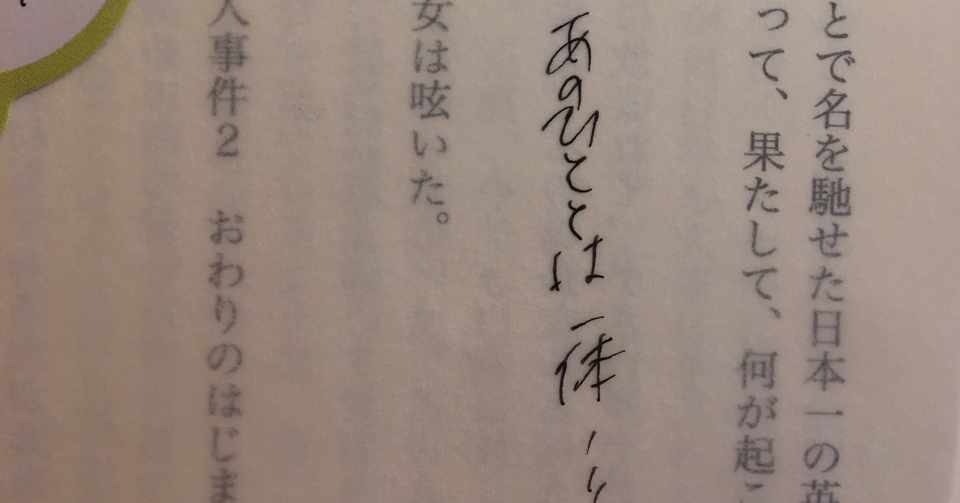 とで名を馳せた日本一の英
って、果たして、何が起こ
あのひことは一体
女は呟いた。
人事件2 おわりのはじま